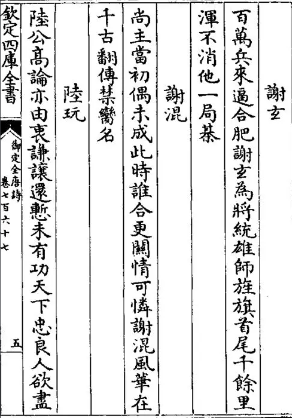 謝玄
百萬兵來逼合肥謝玄為將統雄師旌旗首尾千餘里
渾不消他一局棊
謝混
尚主當初偶未成此時誰合更關情可憐謝混風華在
千古翻傳禁臠名
陸玩
陸公高論亦由衷謙讓還慙未有功天下忠良人欲盡
欽定四庫全書
御定全唐詩
卷七百六十七
五